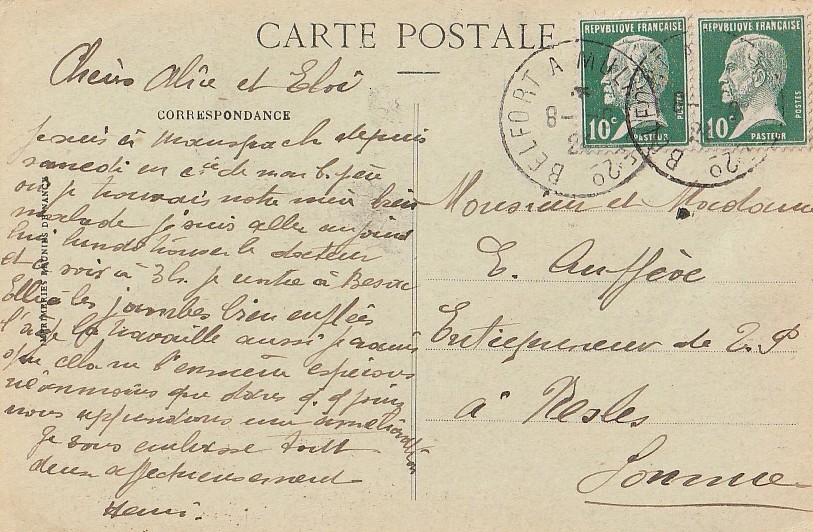 CARTE POSTALE
Chers Alice et Eloi
CORRESPONDANCE
Je suis à Manspach depuis
samedi en cie de mon b. père
où je trouvais notre mère bien
malade je suis allé aujourd
hui lundi trouver le docteur
et ce soir à 3h. je rentre à Besac
Elle a les jambes bien enflées
l'age la travaille aussi je
que cela ne l'emmène espérons
néanmoins que dans q.q. jours
nous apprendrons une amélioration
Je vous embrasse tout
deux affectueusement
Henri.
IMPRIMERIES REUNIES DE NANCY
REPVBLIQVE FRANÇAISE
10c
POSTES
PASTEUR
REPVBLIQVE FRANÇAISE
10c
POSTES
PASTEUR
BELFORT A MUL
8-
2
E.2o
Monsieur et Madame
E. Auffève
Entrepreneur de T. P
à Nesles
Somme